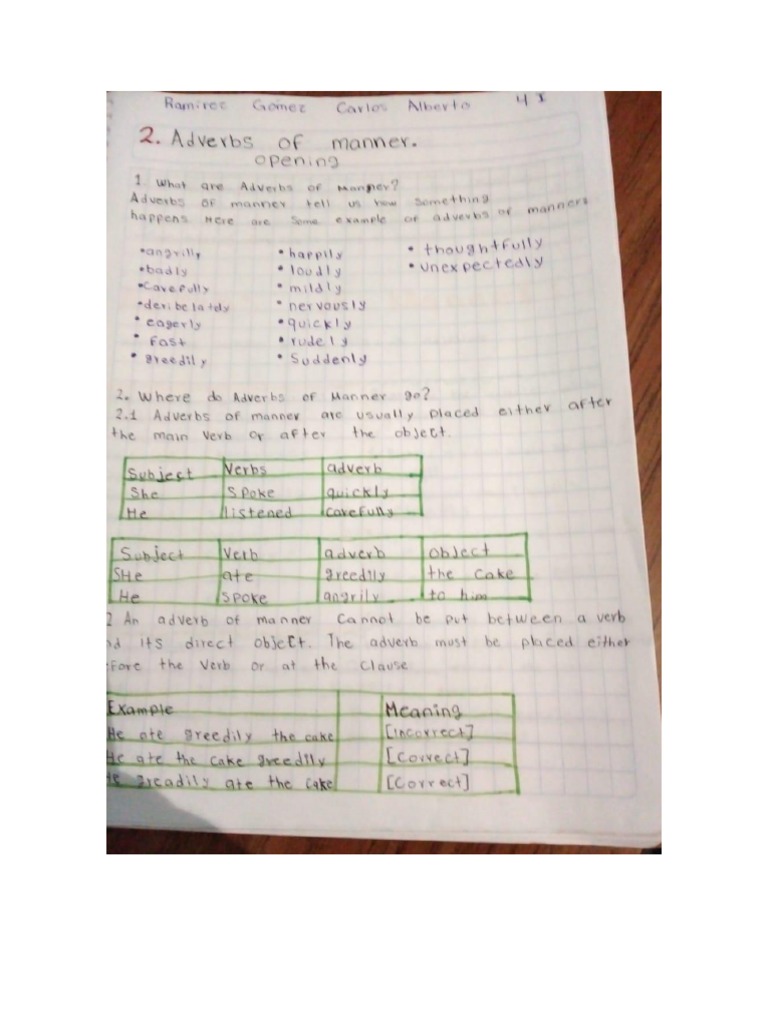 Ramirez Gómez Carlos Alberto 4 I
2. Adverbs of manner.
opening
1. What are Adverbs of Manner?
Adverbs of manner tell us how something
happens. Here are some example of adverbs of manners
•angrilly
•badly
•Carefully
•deribelatdy
• eagerly
• Fast
• greedily
• happily
• loudly
• mildly
• nervously
•quickly
• rudely
• Suddenly
• thoughtfully
• unexpectedly
2. Where do Adverbs of Manner go?
2.1 Adverbs of manner are usually placed either after
the main verb or after the object.
Subject Verbs adverb
She Spoke quickly
He listened carefully
Subject Verb adverb object
SHe ate greedily the cake
He spoke angrily to him
2 An adverb of manner cannot be put between a verb
d its direct object. The adverb must be placed either
fore the verb or at the clause
Example Meaning
He ate greedily the cake [Incorrect]
He ate the cake greedily [Correct]
He greadily ate the cake [Correct]